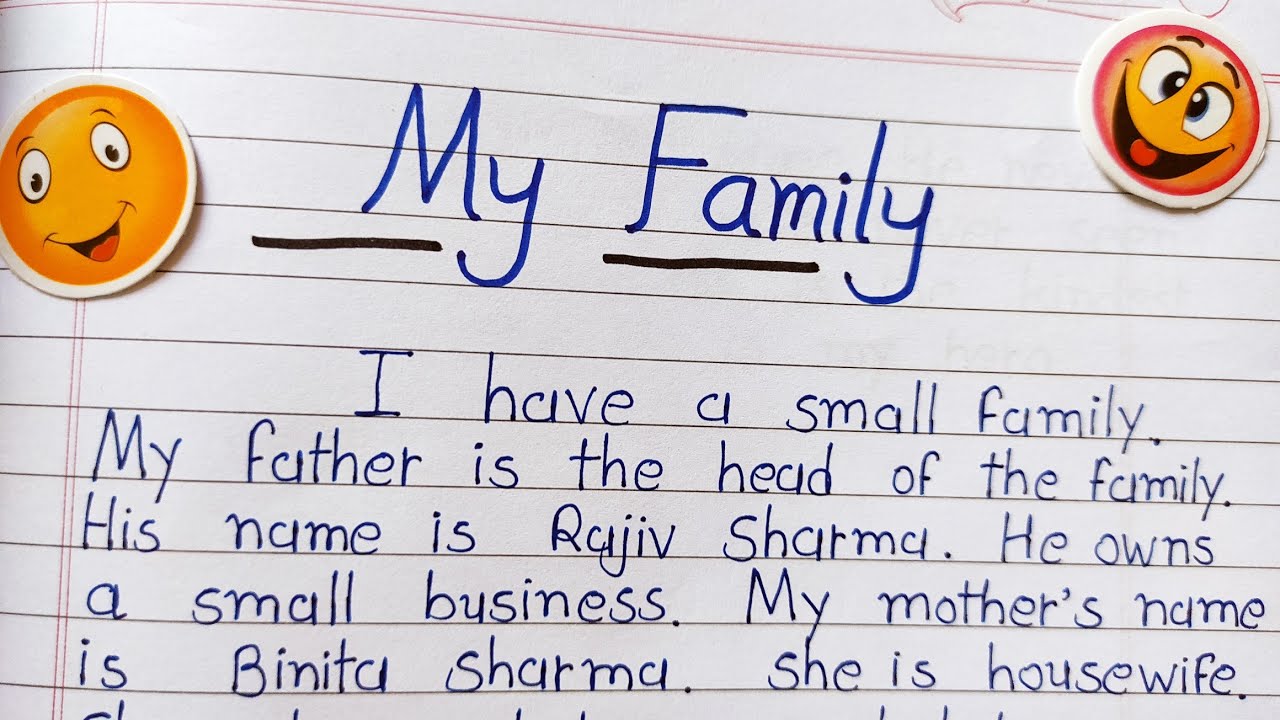 My Family
I have a small family.
My father is the head of the family.
His name is Rajiv Sharma. He owns
a small business. My mother's name
is Binita Sharma. she is housewife.